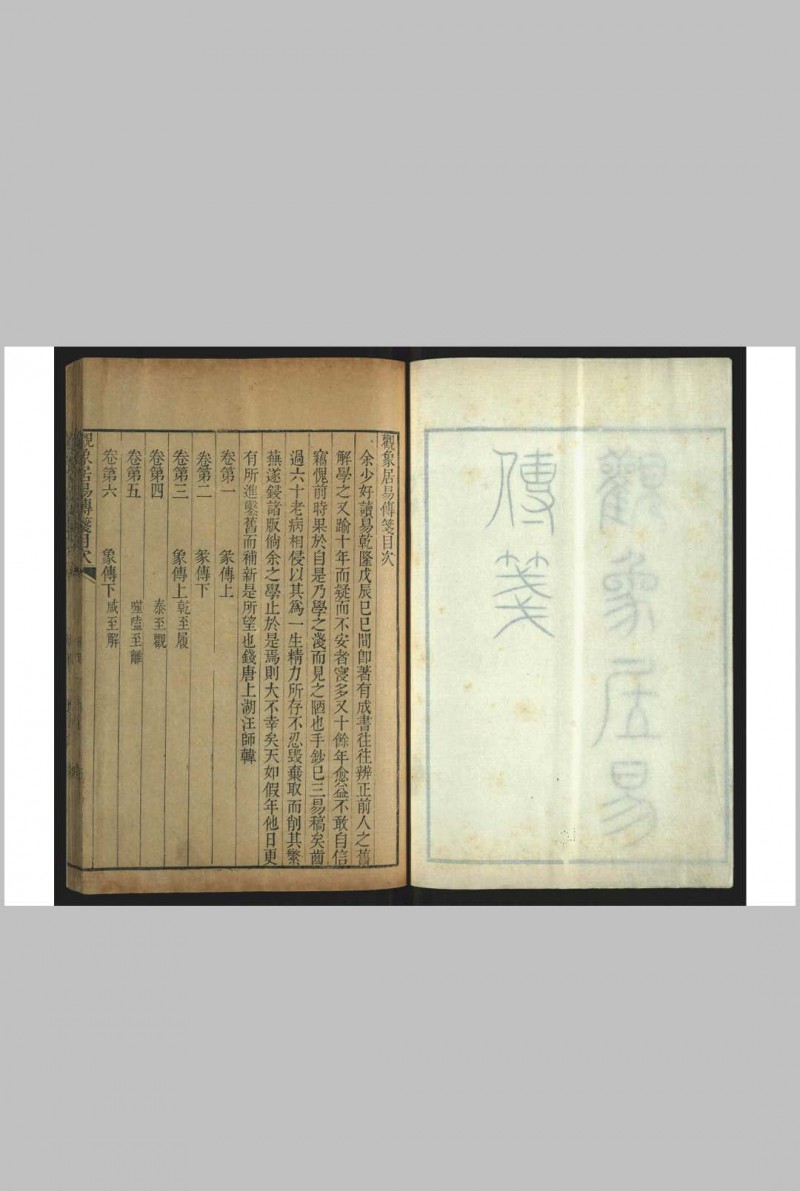 觀象居易
傳箋
觀象居易傳箋目次
余少好讀易乾隆戊辰己巳間卽著有成書往往辨正前人之舊
解學之又踰十年而疑而不安者寖多又十餘年愈益不敢自信
竊愧前時果於自是乃學之淺而見之陋也手鈔已三易稿矣齒
過六十老病相侵以其爲一生精力所存不忍毁棄取而削其繁
蕪遂鋟諸版倘余之學止於是焉則大不幸矣天如假年他日更
有所進鑿舊而補新是所望也錢唐上湖汪師韓
卷第一 彖傳上
卷第二 彖傳下
卷第三 象傳上乾至履
卷第四 泰至觀
卷第五 噬嗑至離
卷第六 象傳下咸至解
觀象居易傳箋目次